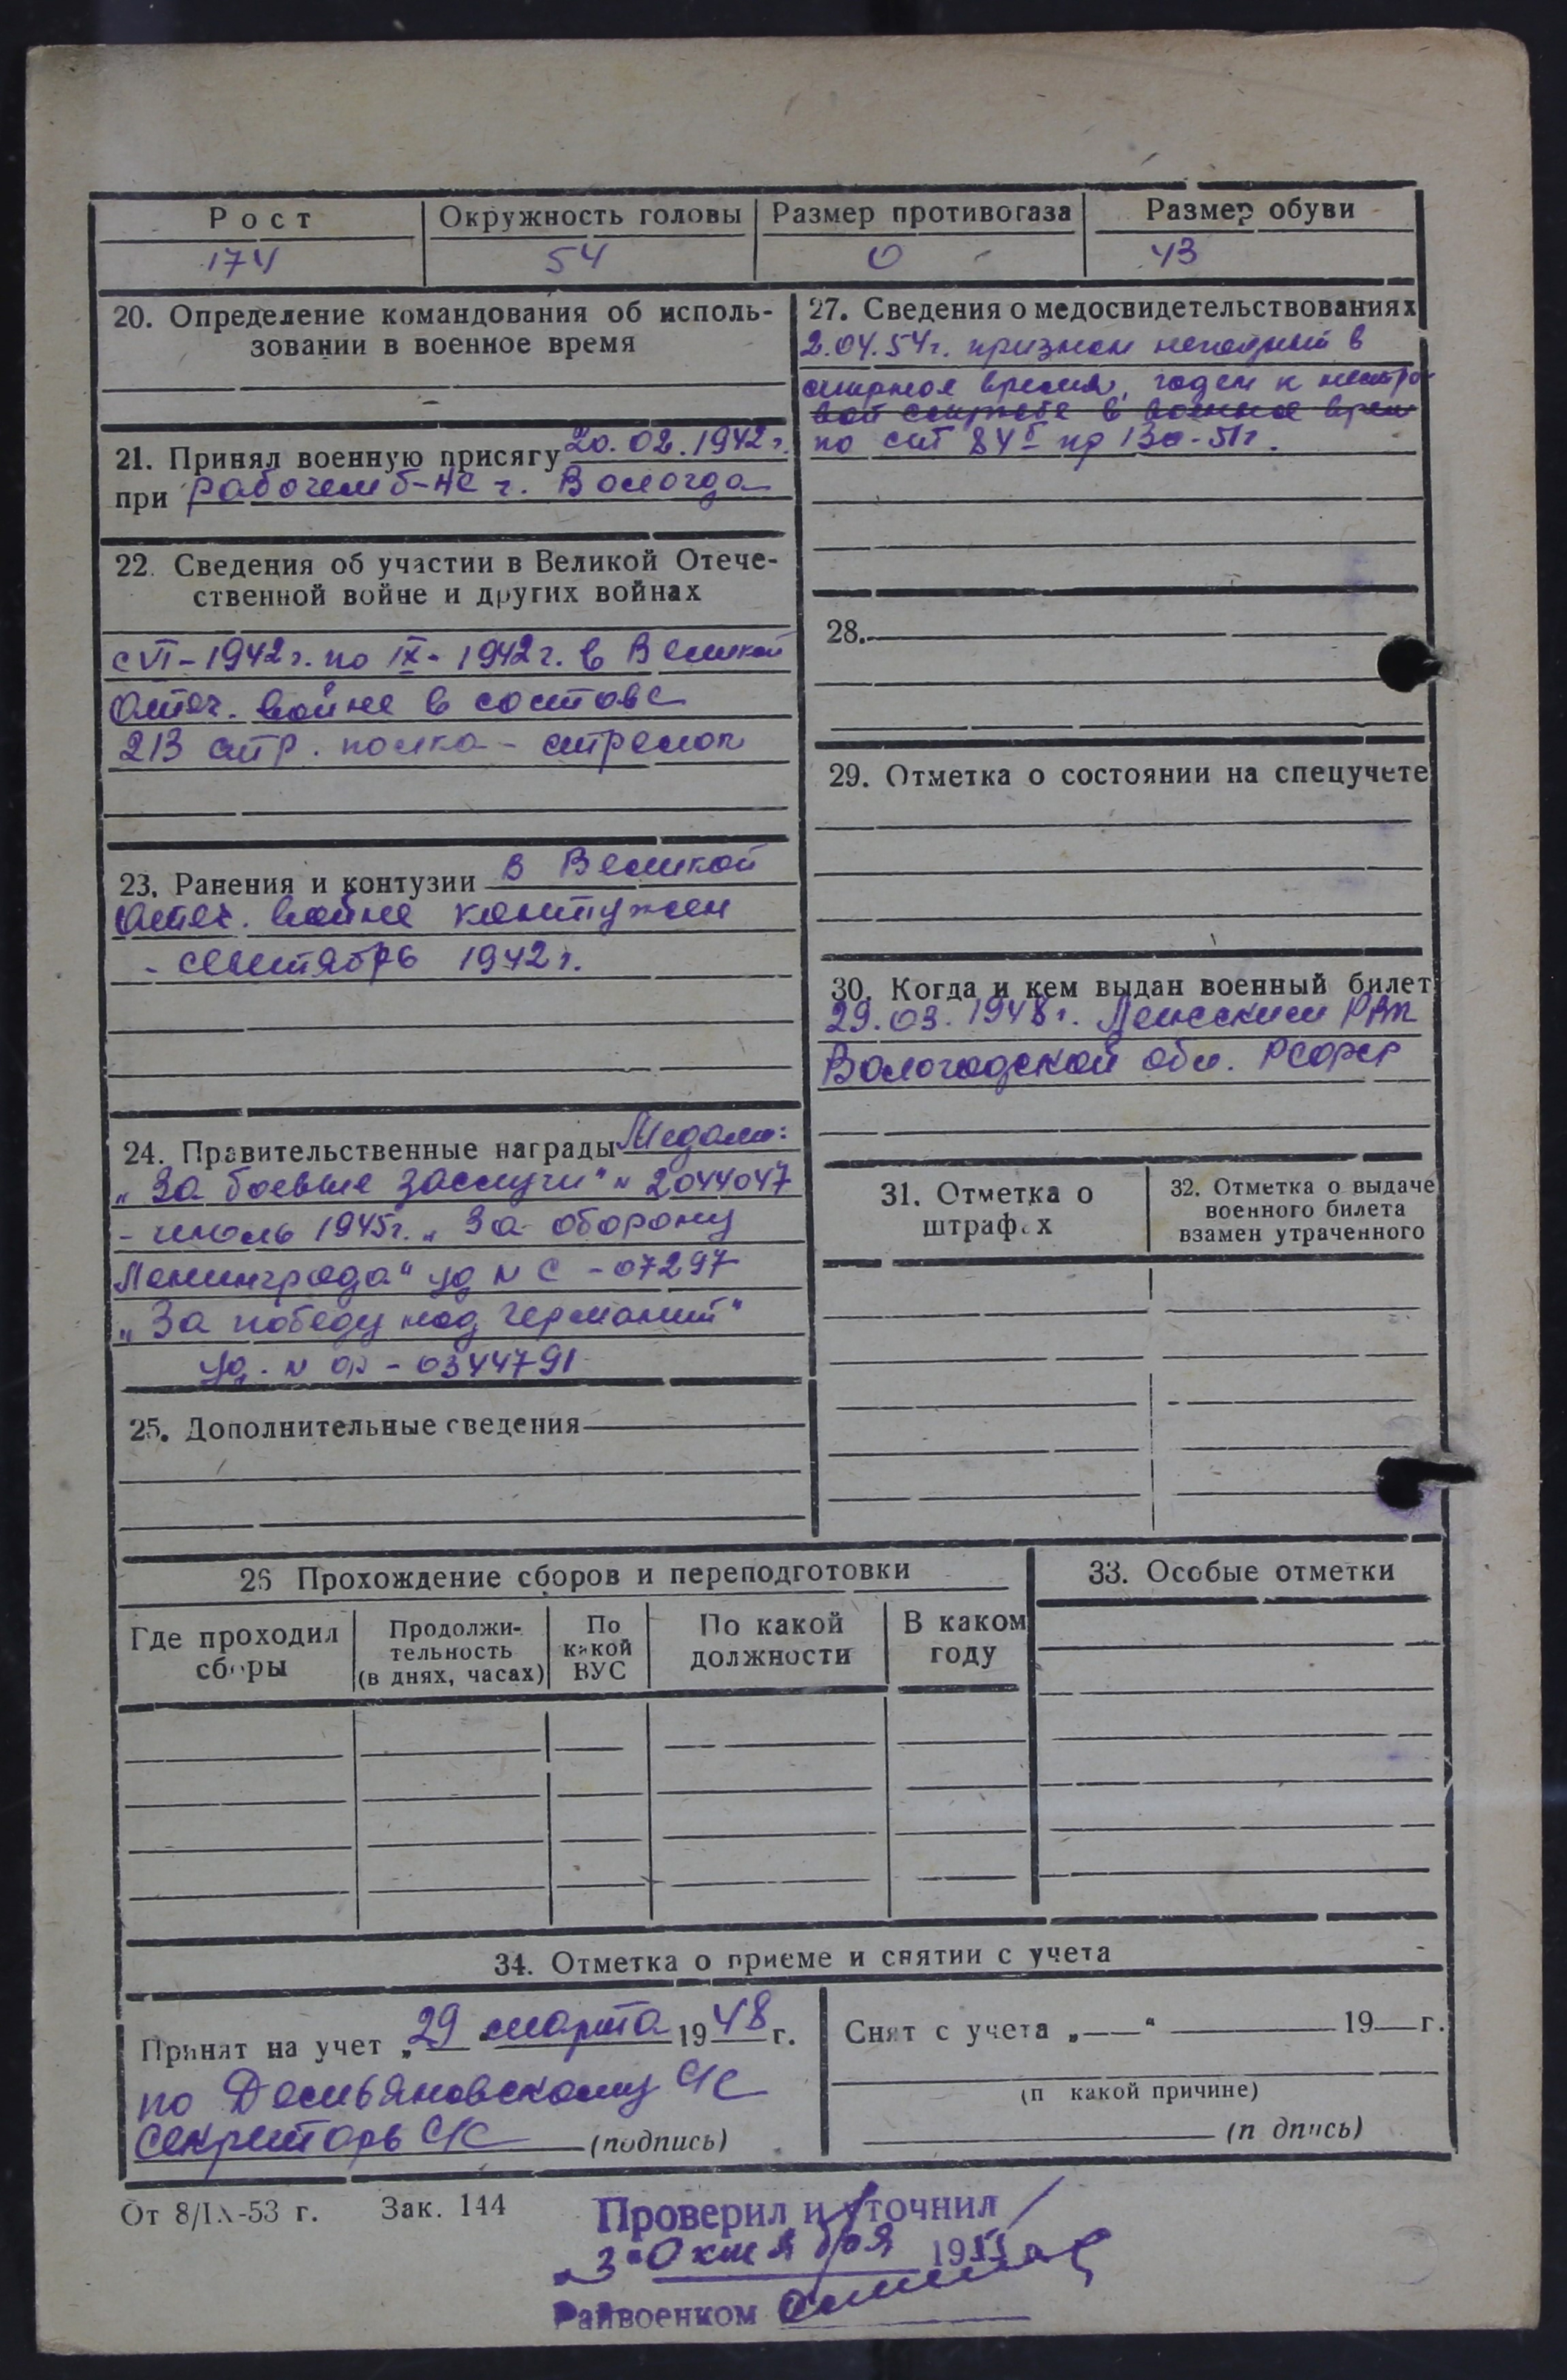 Рост Окружность головы Размер противогаза Размер обуви
174 54 0 43
20. Определение командования об исполь-
зовании в военное время
21. Принял военную присягу 20.02.1942 г.
при рабочем б-не г. Вологда
22. Сведения об участии в Великой Отече-
ственной войне и других войнах
с VI-1942 г. по IX-1942 г. в Великой
Отеч. войне в составе
213 стр. полка - стрелок
23. Ранения и контузии в Великой
Отеч. войне контужен
- сентябрь 1942 г.
24. Правительственные награды Медали:
„За боевые заслуги" N 2044047
- июль 1945 г. „За оборону
Ленинграда" уд N С - 07297
„За победу над Германий"
уд. N - 0344791
25. Дополнительные сведения
27. Сведения о медосвидетельствованиях
2.04.54 г. признан негодный в
мирное время, годен к нестро-
вой службе в военное врем
по ст 84 пр 130-51 г.
28.
29. Отметка о состоянии на спецучете
30. Когда и кем выдан военный билет
29.03.1948 г. РВК
Вологодской обл. РСФСР
31. Отметка о
штрафах
32. Отметка о выдаче
военного билета
взамен утраченного
26 Прохождение сборов и переподготовки
Где проходил
сборы
Продолжи-
тельность
(в днях, часах)
По
какой
ВУС
По какой
должности
В каком
году
33. Особые отметки
34. Отметка о приеме и снятии с учета
Принят на учет „29 марта 1948 г.
по Демьяновскому с/с
секретарь с/с (подпись)
Снят с учета „ “ 19 г.
(п какой причине)
(п дпись)
От 8/IX-53 г. Зак. 144
Проверил и уточнил
„3" Октября 1955
Райвоенком